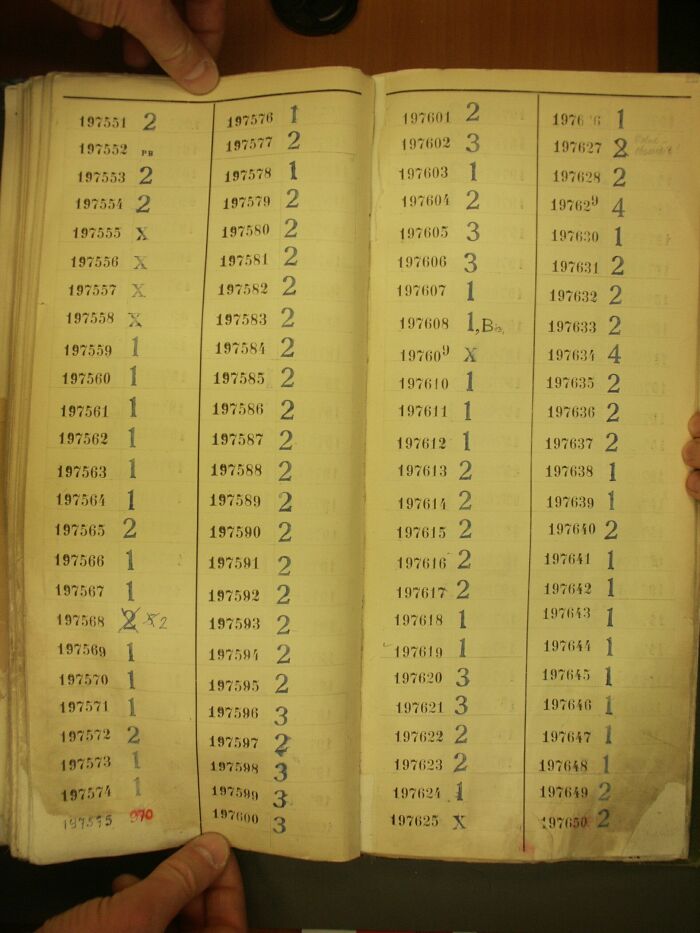 197551 2
197552 PB
197553 2
197554 2
197555 X
197556 X
197557 X
197558 X
197559 1
197560 1
197561 1
197562 1
197563 1
197564 1
197565 2
197566 1
197567 1
197568 2 2
197569 1
197570 1
197571 1
197572 2
197573 1
197574 1
197575 970
197576 1
197577 2
197578 1
197579 2
197580 2
197581 2
197582 2
197583 2
197584 2
197585 2
197586 2
197587 2
197588 2
197589 2
197590 2
197591 2
197592 2
197593 2
197594 2
197595 2
197596 3
197597 2
197598 3
197599 3
197600 3
197601 2
197602 3
197603 1
197604 2
197605 3
197606 3
197607 1
197608 1, Bis
197609 X
197610 1
197611 1
197612 1
197613 2
197614 2
197615 2
197616 2
197617 2
197618 1
197619 1
197620 3
197621 3
197622 2
197623 2
197624 1
197625 X
1976 6 1
197627 2
197628 2
197629 4
197630 1
197631 2
197632 2
197633 2
197634 4
197635 2
197636 2
197637 2
197638 1
197639 1
197640 2
197641 1
197642 1
197643 1
197644 1
197645 1
197646 1
197647 1
197648 1
197649 2
197650 2